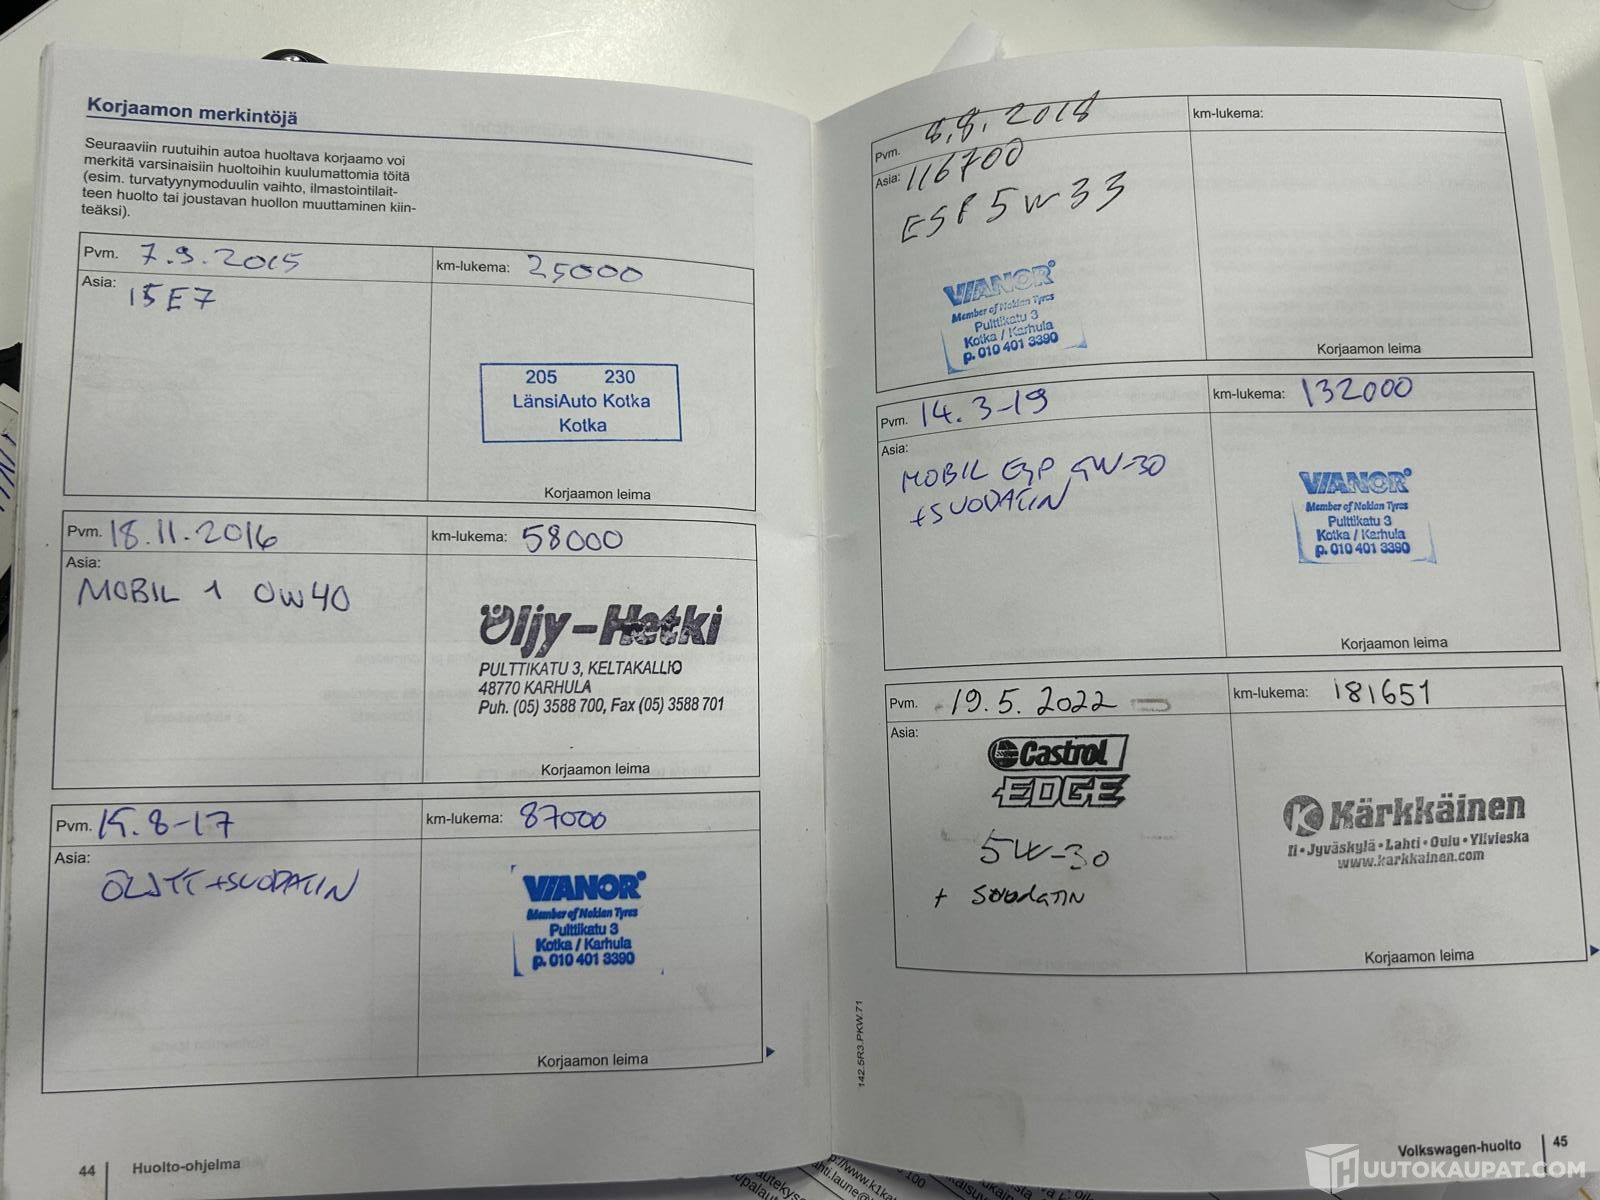 Korjaamon merkintöjä
Seuraaviin ruutuihin autoa huoltava korjaamo voi
merkitä varsinaisiin huoltoihin kuulumattomia töitä
(esim. turvatyynymoduulin vaihto, ilmastointilait-
teen huolto tai joustavan huollon muuttaminen kiin-
teäksi).
Pvm. 7.9.2015 km-lukema: 25000
Asia: 15E7
205 230
LänsiAuto Kotka
Kotka
Korjaamon leima
Pvm. 18.11.2016 km-lukema: 58000
Asia:
MOBIL 1 0W40
Öljy-Hetki
PULTTIKATU 3, KELTAKALLIO
48770 KARHULA
Puh. (05) 3588 700, Fax (05) 3588 701
Korjaamon leima
Pvm. 15.8-17 km-lukema: 87000
Asia:
ÖLJYT +SUODATIN
VIANOR
Member of Nokian Tyres
Pulttikatu 3
Kotka / Karhula
p. 010 401 3390
Korjaamon leima
44 Huolto-ohjelma
Pvm. 8.8.2018 km-lukema:
Asia: 116700
ESP 5W33
VIANOR
Member of Nokian Tyres
Pulttikatu 3
Kotka / Karhula
p. 010 401 3390
Korjaamon leima
Pvm. 14.3-19 km-lukema: 132000
Asia:
MOBIL ESP 5W-30
+SUODATIN
VIANOR
Member of Nokian Tyres
Pulttikatu 3
Kotka / Karhula
p. 010 401 3390
Korjaamon leima
Pvm. 19.5.2022 km-lukema: 181651
Asia:
Castrol
EDGE
5W-30
+ SUODATIN
Kärkkäinen
Ii • Jyväskylä • Lahti • Oulu • Ylivieska
www.karkkainen.com
Korjaamon leima
142.5R3.PKW.71
Volkswagen-huolto 45
HUUTOKAUPAT.COM